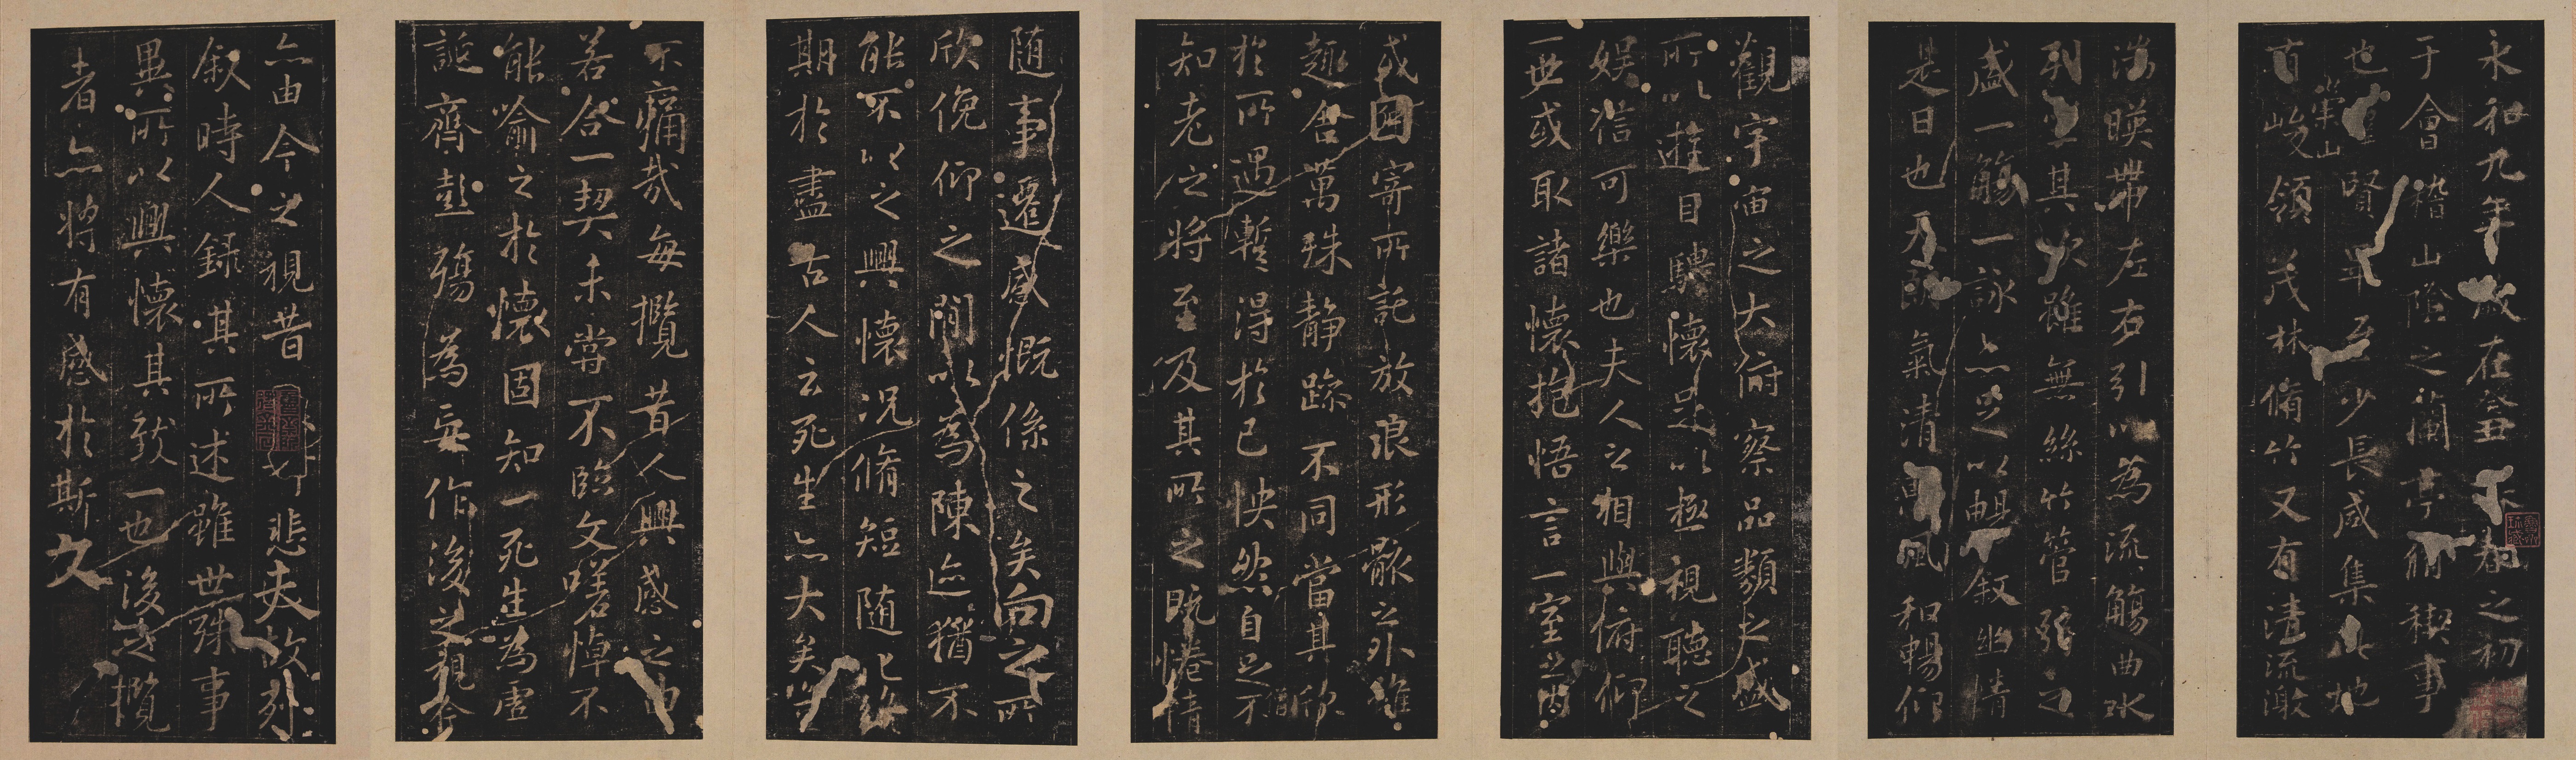 永和九年歲在癸丑暮春之初
于會稽山陰之蘭亭脩稧事
也羣賢畢至少長咸集此地
有崇山峻領茂林脩竹又有清流激
湍暎帶左右引以為流觴曲水
列坐其次雖無絲竹管弦之
盛一觴一詠亦足以暢叙幽情
是日也天朗氣清惠風和暢仰
觀宇宙之大俯察品類之盛
所以遊目騁懷足以極視聽之
娛信可樂也夫人之相與俯仰
一世或取諸懷抱悟言一室之內
或因寄所託放浪形骸之外雖
趣舍萬殊静躁不同當其欣
於所遇暫得於己怏然自足不
知老之將至及其所之既惓情
随事遷感慨係之矣向之所
欣俛仰之閒以為陳迹猶不
能不以之興懷况脩短随化終
期於盡古人云死生亦大矣豈
不痛哉每攬昔人興感之由
若合一契未甞不臨文嗟悼不
能喻之於懷固知一死生為虛
誕齊彭殤為妄作後之視今
亦由今之視昔悲夫故列
叙時人録其所述雖世殊事
異所以興懷其致一也後之攬
者亦將有感於斯文